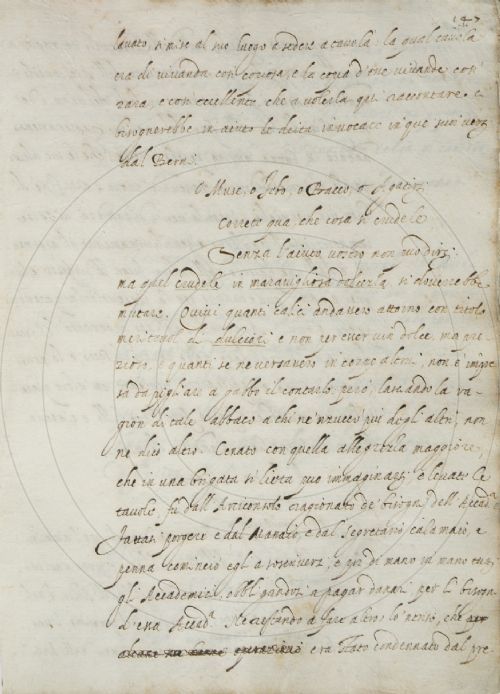 147
lavato, si mise al suo luogo a sedere a tavola: la qual tavola
era di vivanda così copiosa, e la copia d'esse vivande così
rara, e così eccellente, che a volerla qui raccontare e
bisognerebbe in aiuto le deità invocare in que suoi versi
dal Berni
O Muse, o Febo, o Bacco, o Agatirsi
Correte qua, che cosa sì crudele
Senza l'aiuto vostro non può dirsi
ma quel crudele in maravigliosa si doverrebbe
mutare. Quivi quanti calici andassero attorno con titolo
di dulciori e non per esser vin dolce, ma
e quanti se ne versassero in corpo altrui, non è impre
sa da pigliare a gabbo il contarlo, però lasciando la ra
gion di tale abbaco a chi ne più degl'altri, non
ne dirò altro. Cenato con quella allegrezza maggiore,
che in una brigata sì lieta può immaginarsi e levate le
tavole, fu dall'Arciconsolo ragionato de' bisogni dell'Accad.ª
fattasi porgere e dal Massaio, e dal Segretario calamaio, e
penna cominciò egli a soscriversi, e poi di mano in mano tutti
gl'Accademici, obbligandosi a pagar danari per li bisogni
d'essa Accad.ª Ne restando a far altro lo 'nferno, che
era stato condennato dal pre